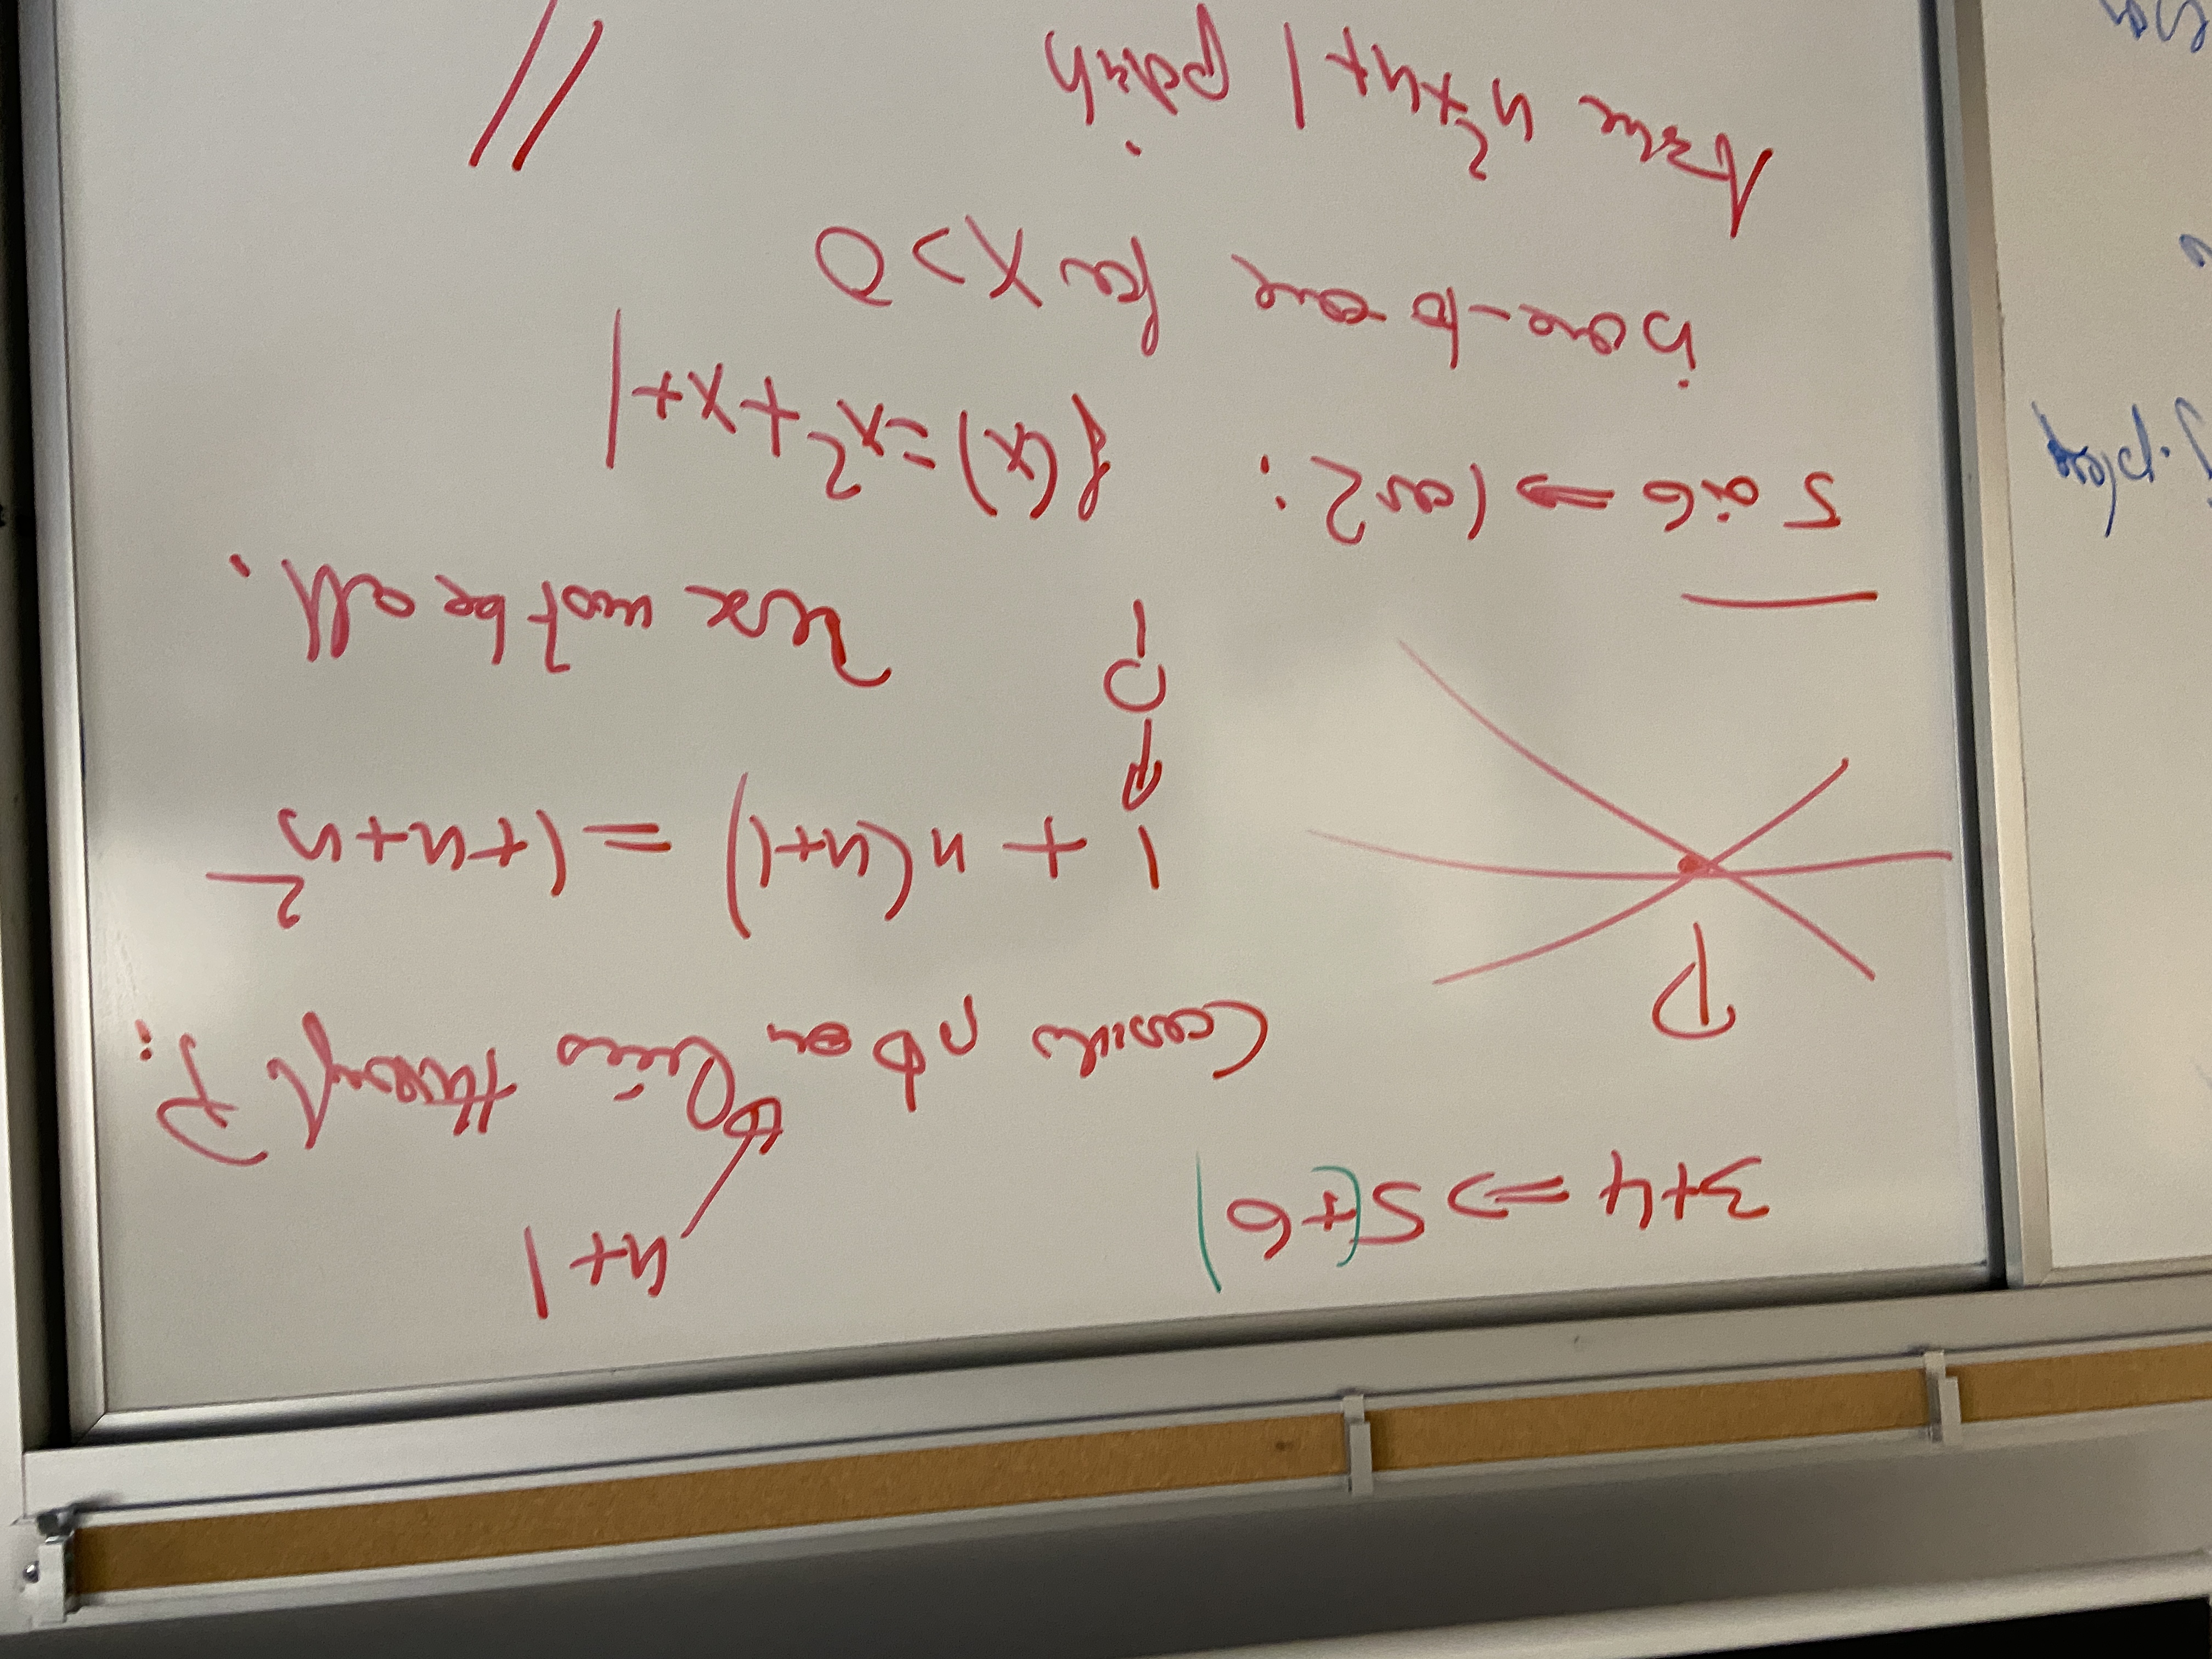 3+4 => 5(+6)
n+1
Consider pts on lines through P:
P
1 + n(n+1) = 1+n+n²
↑
P
These must be all.
5 or 6 => 1 or 2:
f(x) = x² + x + 1
is one-to-one for x > 0
Assume n²+n+1 points
//